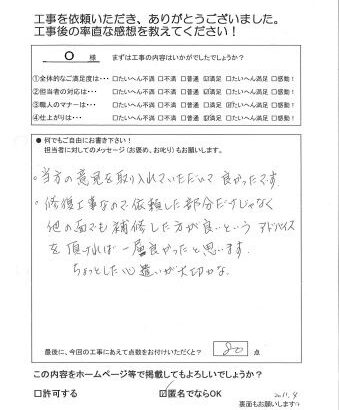 工事を依頼いただき、ありがとうございました。
工事後の率直な感想を教えてください!
O 様 まずは工事の内容はいかがでしたでしょうか?
①全体的なご満足度は… □たいへん不満 □不満 □普通 ☑満足 □たいへん満足 □感動!
②担当者の対応は… □たいへん不満 □不満 □普通 ☑満足 □たいへん満足 □感動!
③職人のマナーは… □たいへん不満 □不満 □普通 □満足 ☑たいへん満足 □感動!
④仕上がりは… □たいへん不満 □不満 □普通 ☑満足 □たいへん満足 □感動!
● 何でもご自由にお書き下さい!
担当者に対してのメッセージ(お褒め、お叱り)もお願いします。
・当方の意見を取り入れていただいて良かったです。
・修復工事なので依頼した部分だけじゃなく
他の面でも補修した方が良いというアドバイス
を頂ければ一層良かったと思います。
ちょっとした心遣いが大切かな。
最後に、今回の工事にあえて点数をお付けいただくと? 80 点
この内容をホームページ等で掲載してもよろしいでしょうか?
□許可する ☑匿名でならOK
2011.9
裏面もお願いします